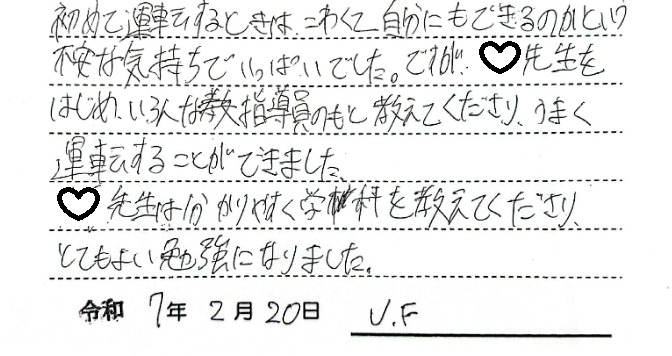 初めて運転するときは、こわくて自分にもできるのかという
不安な気持ちでいっぱいでした。ですが、♡先生を
はじめ、いろんな教指導員のもと教えてくださり、うまく
運転することができました、
♡先生は分かりやすく学科を教えてくださり、
とてもよい勉強になりました。
令和 7年 2月 20日 U.F